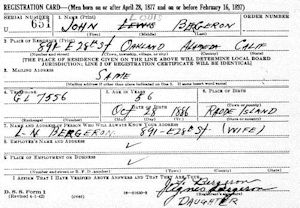 REGISTRATION CARD—(Men born on or after April 28, 1877 and on or before February 16, 1897)
SERIAL NUMBER 1. NAME (Print) ORDER NUMBER
U 651 JOHN LOUIS BERGERON
(First) (Middle) (Last)
2. PLACE OF RESIDENCE (Print)
891 E 28th St OAKLAND ALAMEDA CALIF
[THE PLACE OF RESIDENCE GIVEN ON THE LINE ABOVE WILL DETERMINE LOCAL BOARD
JURISDICTION; LINE 2 OF REGISTRATION CERTIFICATE WILL BE IDENTICAL]
3. MAILING ADDRESS
SAME
4. TELEPHONE 5. AGE IN YEARS 6. PLACE OF BIRTH
GL 7556 56
DATE OF BIRTH
Oct 28 1886 RHODE ISLAND
7. NAME AND ADDRESS OF PERSON WHO WILL ALWAYS KNOW YOUR ADDRESS
BERGERON 891-E 28th St (WIFE)
8. EMPLOYER'S NAME AND ADDRESS
9. PLACE OF EMPLOYMENT OR BUSINESS
I AFFIRM THAT I HAVE VERIFIED ABOVE ANSWERS AND THAT THEY ARE TRUE.
D. S. S. Form 1
(Revised 4-1-42)
Bergeron
DAUGHTER